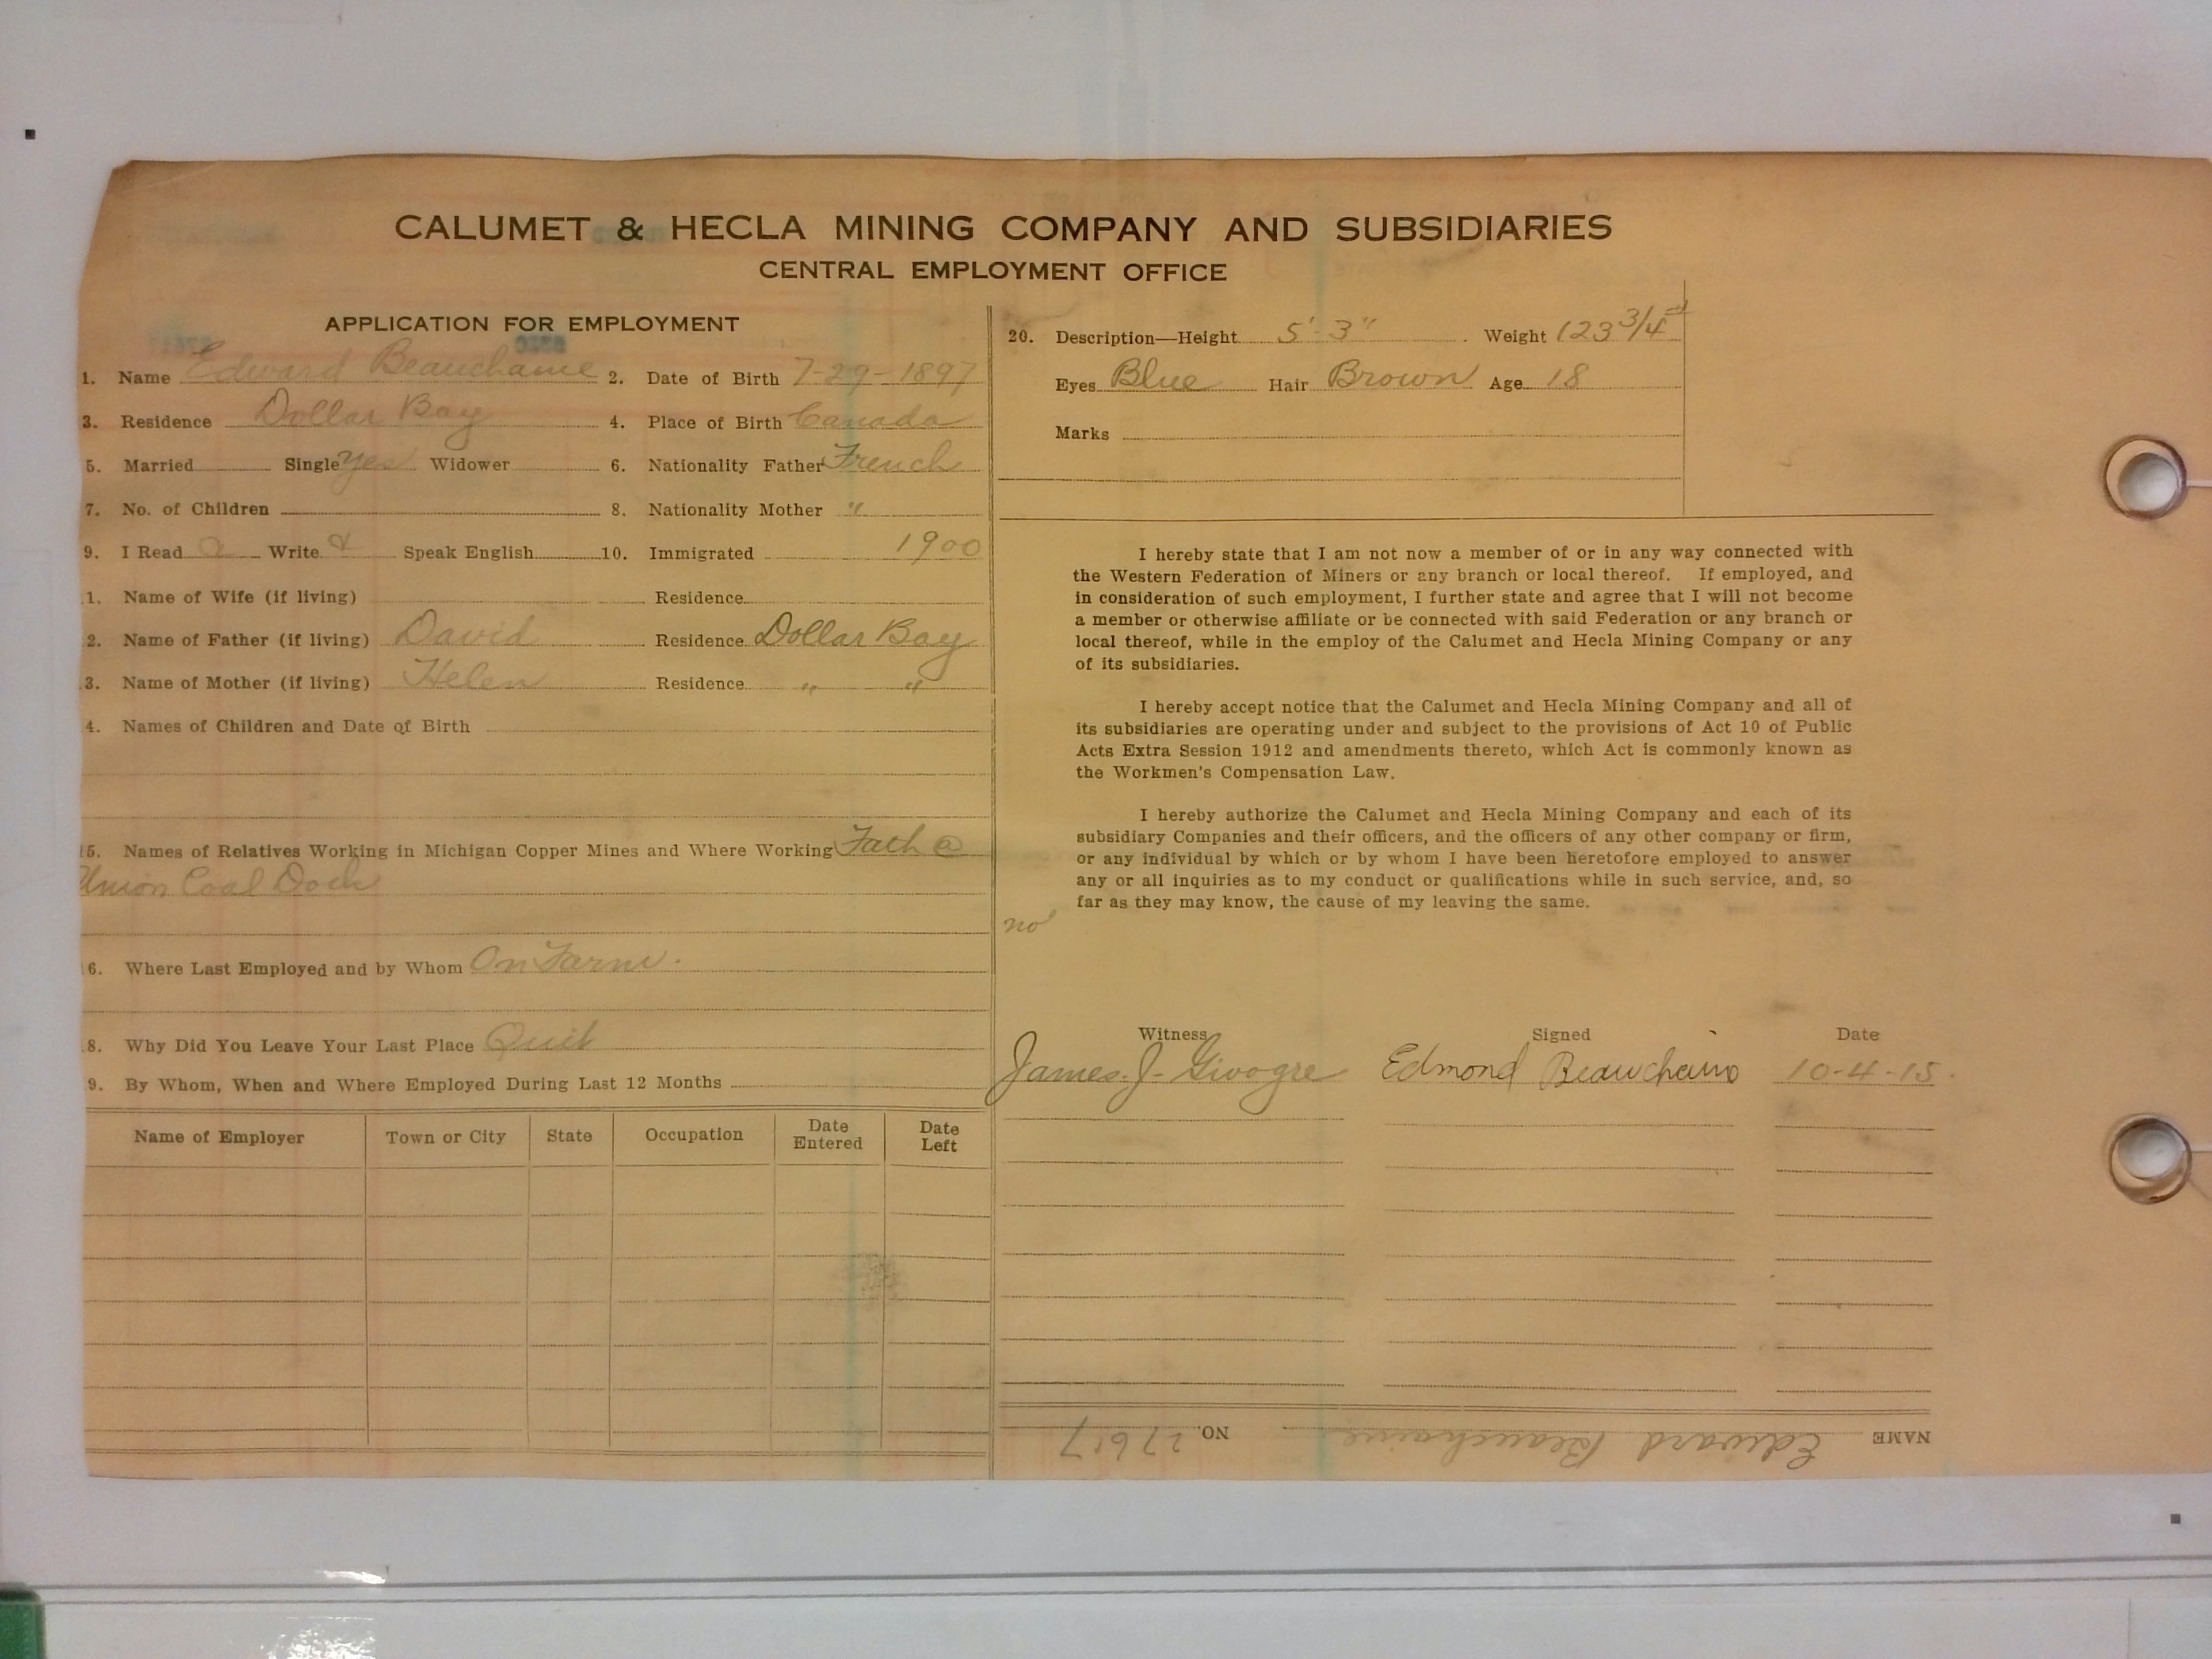 CALUMET & HECLA MINING COMPANY AND SUBSIDIARIES
CENTRAL EMPLOYMENT OFFICE
APPLICATION FOR EMPLOYMENT
1. Name Edward Beauchaine 2. Date of Birth 7-29-1897
3. Residence Dollar Bay 4. Place of Birth Canada
5. Married Single yes Widower 6. Nationality Father French
7. No. of Children 8. Nationality Mother "
9. I Read Write Speak English 10. Immigrated 1900
1. Name of Wife (if living) Residence
2. Name of Father (if living) David Residence Dollar Bay
3. Name of Mother (if living) Helen Residence " "
4. Names of Children and Date of Birth
15. Names of Relatives Working in Michigan Copper Mines and Where Working Fath @
Union Coal Dock
6. Where Last Employed and by Whom On Farm.
8. Why Did You Leave Your Last Place Quit
9. By Whom, When and Where Employed During Last 12 Months
Name of Employer Town or City State Occupation Date Entered Date Left
20. Description—Height 5'-3" Weight 123 3/4
Eyes Blue Hair Brown Age 18
Marks
I hereby state that I am not now a member of or in any way connected with
the Western Federation of Miners or any branch or local thereof. If employed, and
in consideration of such employment, I further state and agree that I will not become
a member or otherwise affiliate or be connected with said Federation or any branch or
local thereof, while in the employ of the Calumet and Hecla Mining Company or any
of its subsidiaries.
I hereby accept notice that the Calumet and Hecla Mining Company and all of
its subsidiaries are operating under and subject to the provisions of Act 10 of Public
Acts Extra Session 1912 and amendments thereto, which Act is commonly known as
the Workmen's Compensation Law.
I hereby authorize the Calumet and Hecla Mining Company and each of its
subsidiary Companies and their officers, and the officers of any other company or firm,
or any individual by which or by whom I have been heretofore employed to answer
any or all inquiries as to my conduct or qualifications while in such service, and, so
far as they may know, the cause of my leaving the same.
no
Witness Signed Date
James. J. Givogre Edmond Beauchaino 10-4-15.
NAME Edward Beauchaine NO. 27617